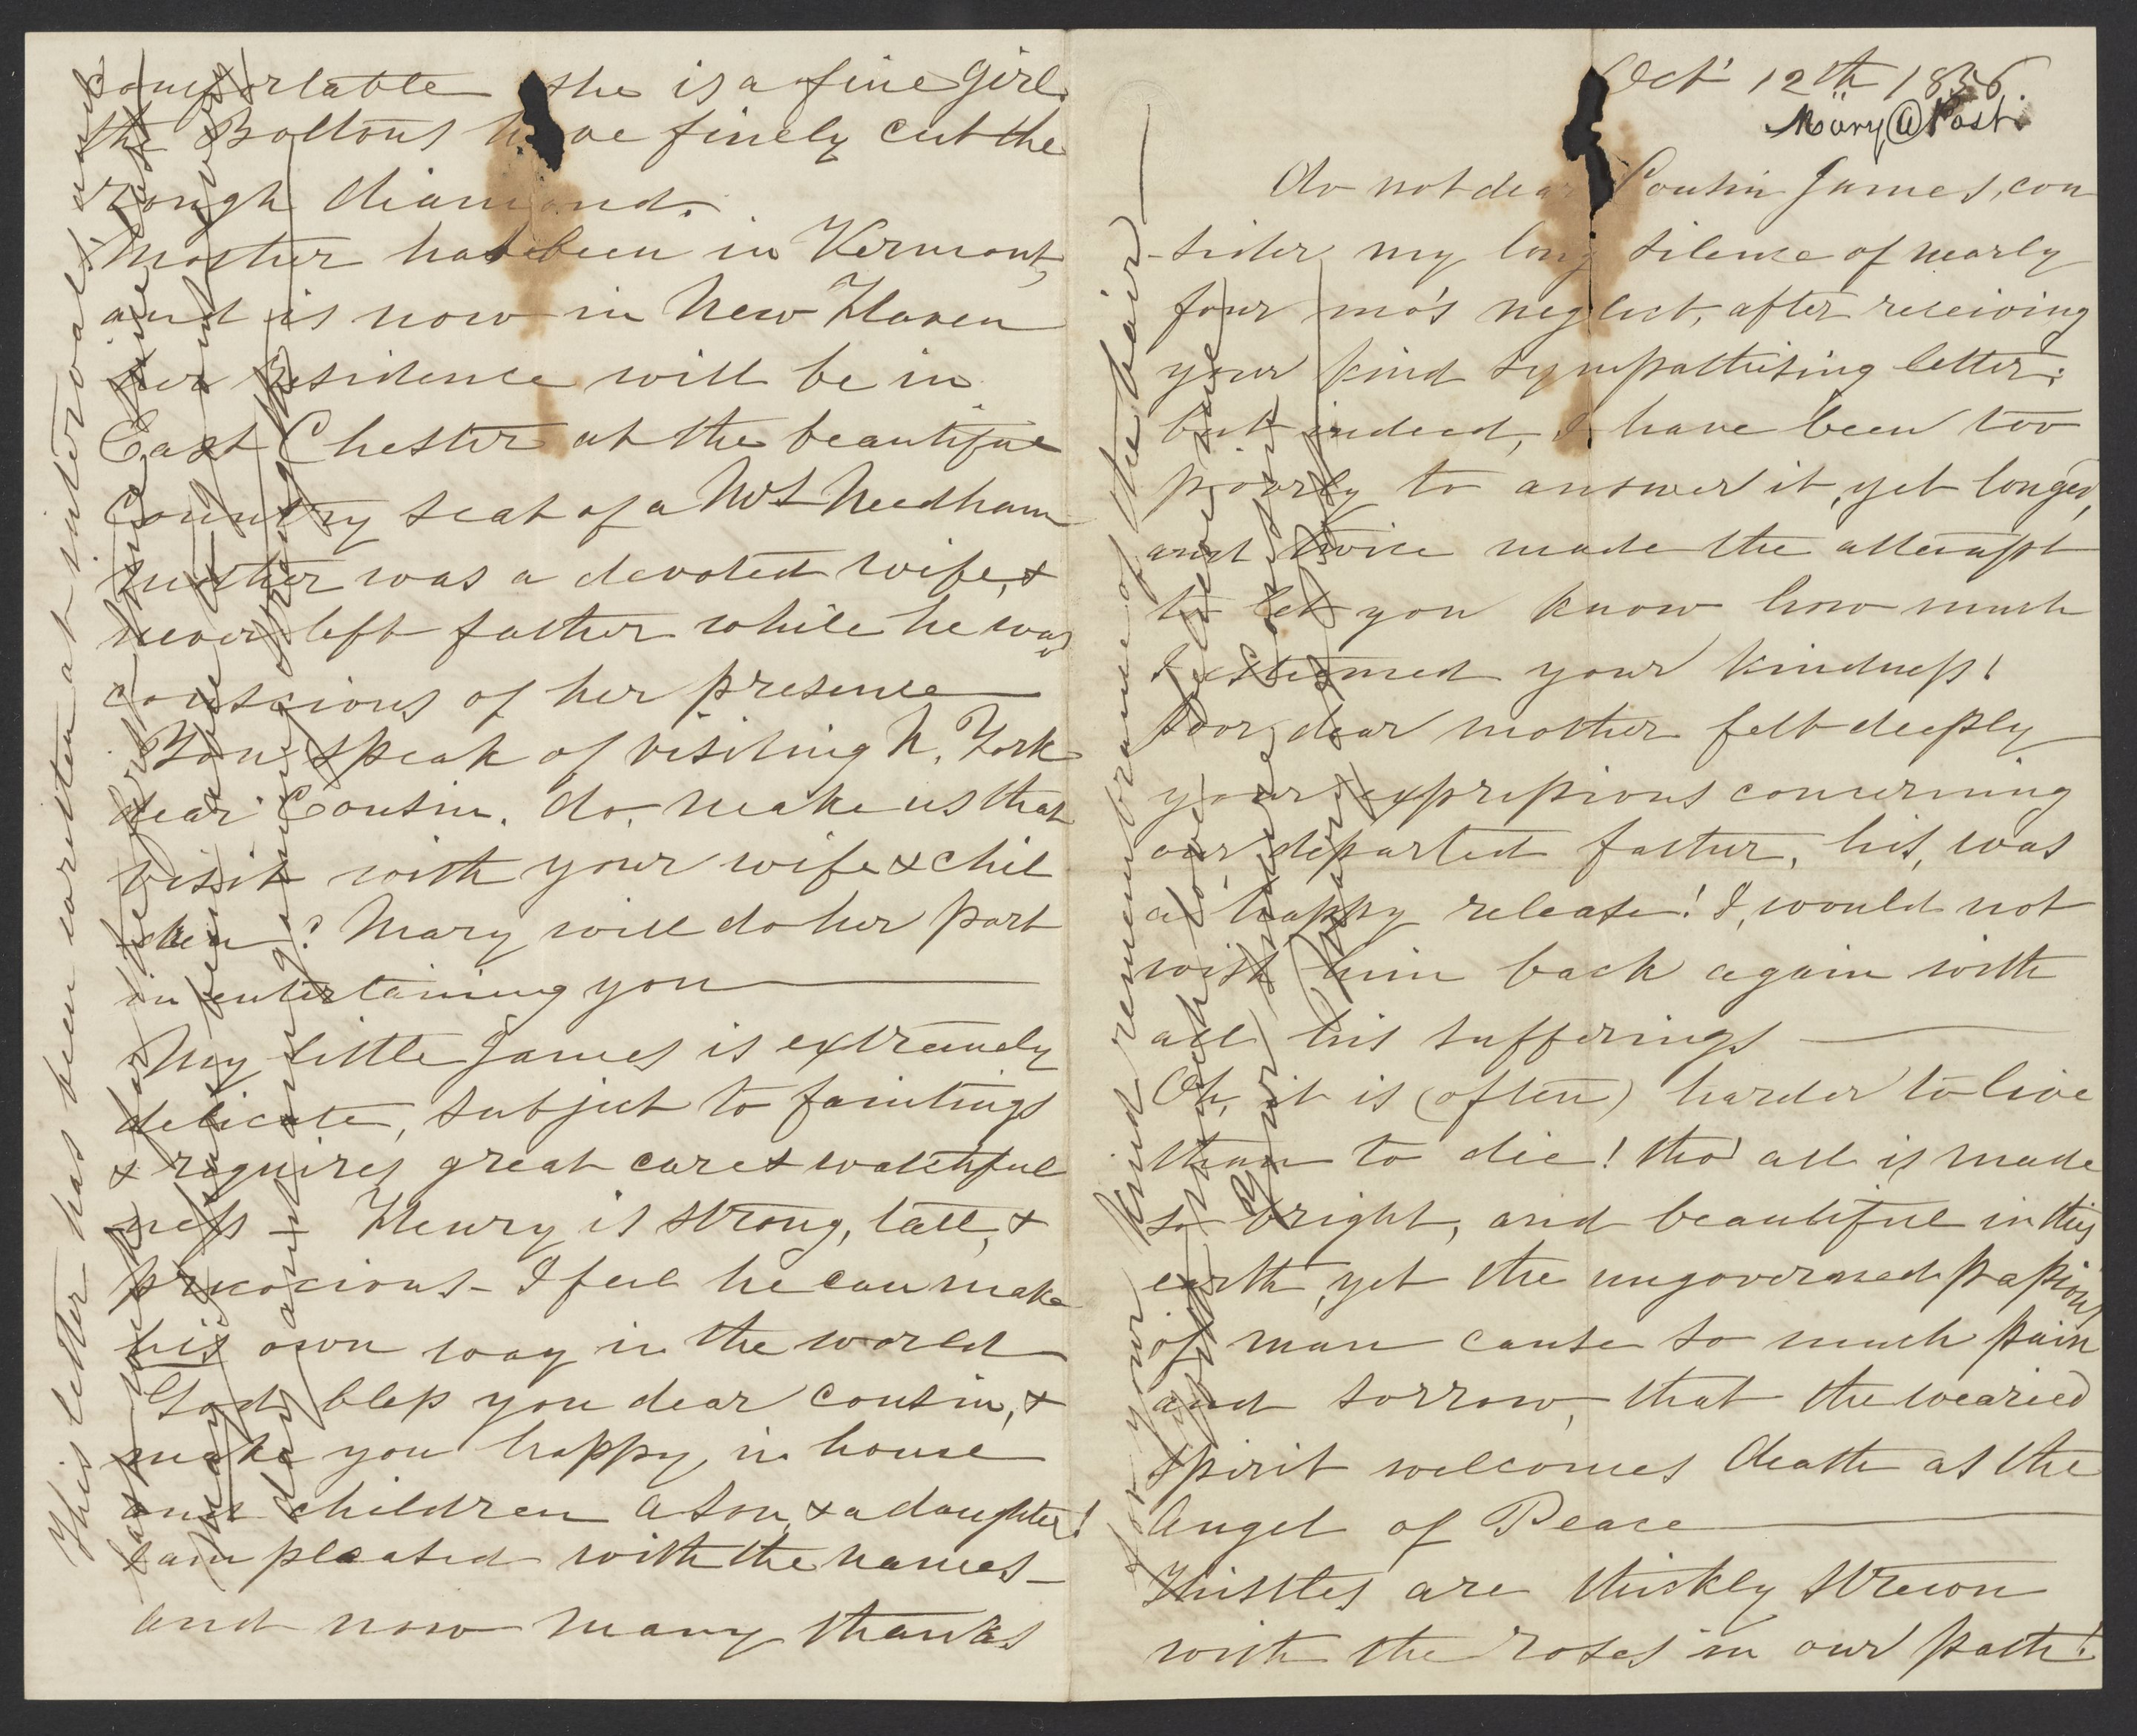 Oct' 12th 1856.
Mary @ Post.
Do not dear Cousin James, con
-sider my long silence of nearly
four mo's neglect, after receiving
your kind sympathising letter.
but indeed, I have been too
poorly to answer it, yet longed,
and twice made the attempt
to let you know how much
I esteemed your kindness!
poor dear mother felt deeply
your expressions concerning
our departed father, his, was
a happy release! I, would not
wish him back again with
all his sufferings —
Oh, it is (often) harder to live
than to die! tho' all is made
so bright, and beautiful in this
earth, yet the ungoverned passions
of man cause so much pain
and sorrow, that the wearied
spirit welcomes death as the
Angel of Peace —
Thistles are thickly strewn
with the roses in our path!
comfortable she is a fine girl.
the Boltons have finely cut the
rough diamond.
Mother has been in Vermont,
and is now in New Haven
her residence will be in
East Chester at the beautiful
Country seat of a Needham
mother was a devoted wife, &
never left father while he was
conscious of her presence
You speak of visiting N. York
dear Cousin. do, make us that
visit with your wife & chil
dren? Mary will do her part
in entertaining you —
My little James is extremely
delicate, subject to faintings
& requires great care & watchful
ness - Henry is strong, tall, &
precocious - I feel he can make
his own way in the world
God bless you dear cousin, &
make you happy in house
and children a son, & a daughter!
I am pleased with the names -
and now many thanks
for your kind remembrance of the hair —
with much love believe me
Your sincere Cousin
Mary
This letter has been written at intervals and